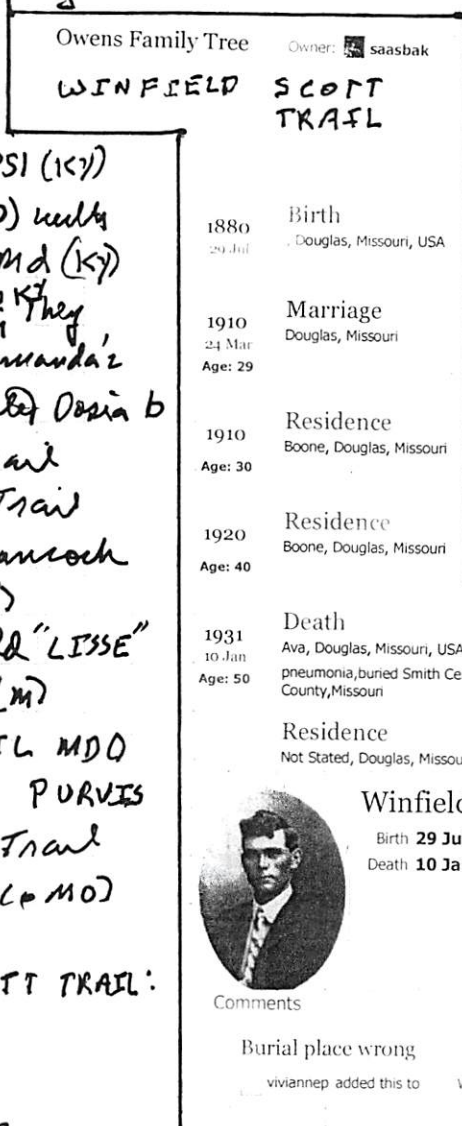 Owens Family Tree Owner: saasbak
WINFIELD SCOTT
TRAIL
(KY)
Md (KY)
They
manda's
Dosia b
ail
Trail
ancock
"LISSE"
MDO
PURVIS
Trail
MO)
TT TRAIL:
1880 Birth
29 Jul . Douglas, Missouri, USA
1910 Marriage
24 Mar Douglas, Missouri
Age: 29
1910 Residence
Age: 30 Boone, Douglas, Missouri
1920 Residence
Age: 40 Boone, Douglas, Missouri
1931 Death
10 Jan Ava, Douglas, Missouri, USA
Age: 50 pneumonia,buried Smith Ce
County,Missouri
Residence
Not Stated, Douglas, Missou
Winfield
Birth 29 Ju
Death 10 Ja
Comments
Burial place wrong
viviannep added this to